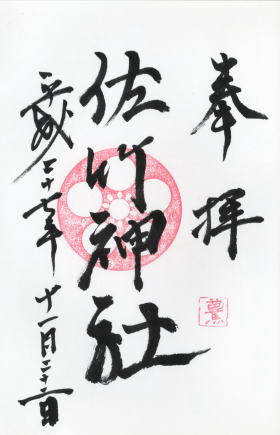 奉拝
佐竹神社
平成二十七年十一月二十二日